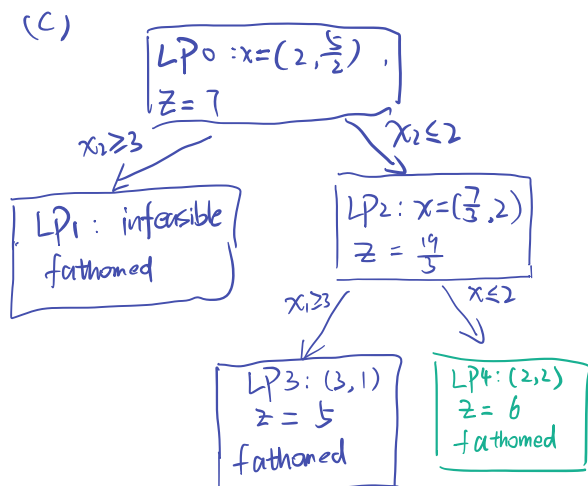 (C)
LP0: x=(2, 5/2).
Z = 7
x₂≥3
x₂≤2
LP1: infeasible
fathomed
LP2: x=(7/3, 2)
Z = 19/3
x₁≥3
x≤2
LP3: (3,1)
z = 5
fathomed
LP4: (2,2)
z = 6
fathomed